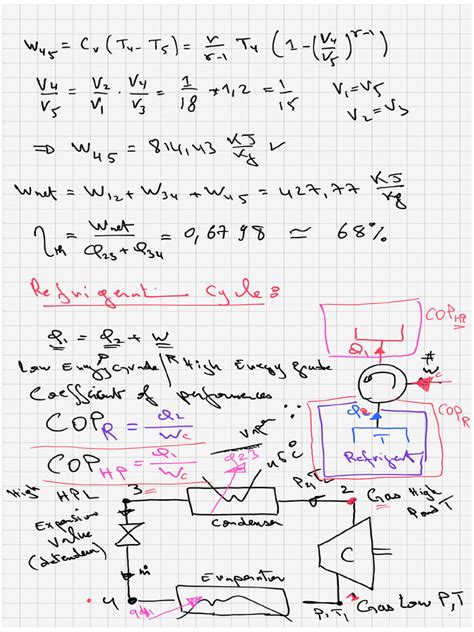 W₄₅ = Cᵥ (T₄ - T₅) = r/(r-1) T₄ (1 - (V₄/V₅)^(r-1))
V₄/V₅ = V₂/V₁ · V₄/V₃ = 1/18 * 1,2 = 1/15   V₁ = V₅
V₂ = V₃
⇒ W₄₅ = 814,43 KJ/Kg ✓
Wnet = W₁₂ + W₃₄ + W₄₅ = 427,77 KJ/Kg
η_th = Wnet/(Q₂₃ + Q₃₄) = 0,6798 ≃ 68%
Refrigeration Cycle:
Q₁ = Q₂ + W
Low Energy grade / High Energy grade
Coefficient of performances :
COP_R = Q₂/Wc
COP_HP = Q₁/Wc
COP_HP
Q₁
W
Q₂
COP_R
T
Refrigerant
45°C
Q23
High HPL
3
Condenser
P₂, T₂
2
Gas High P and T
Expansion Valve (detendeur)
C
ṁ
Evaporation
4
Q41
P₁, T₁
1
Gas Low P, T